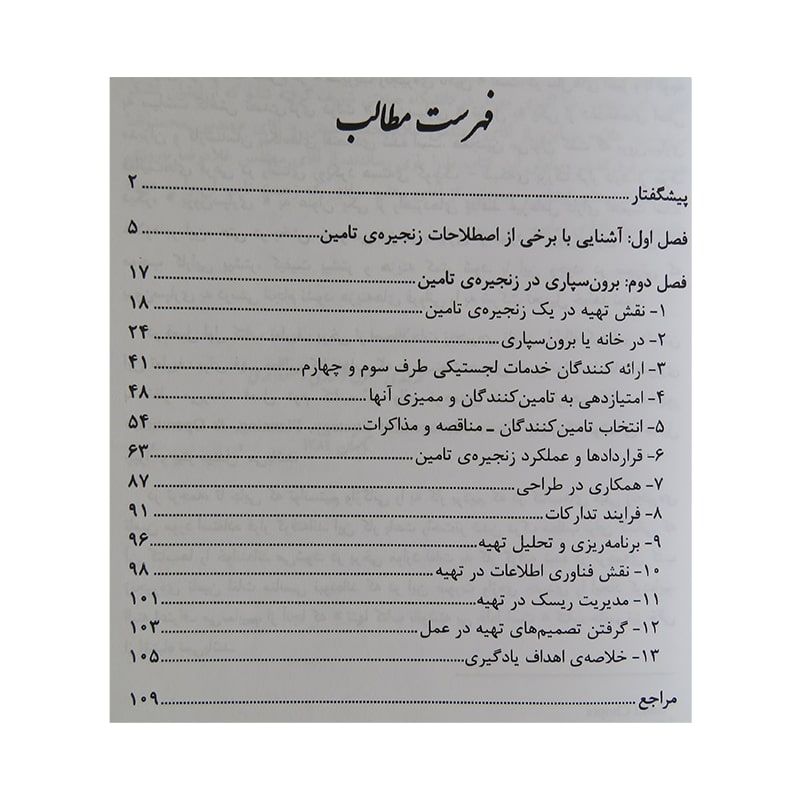 فهرست مطالب
پیشگفتار ........ ۲
فصل اول: آشنایی با برخی از اصطلاحات زنجیره‌ی تامین ........ ۵
فصل دوم: برون‌سپاری در زنجیره‌ی تامین ........ ۱۷
۱- نقش تهیه در یک زنجیره‌ی تامین ........ ۱۸
۲- در خانه یا برون‌سپاری ........ ۲۴
۳- ارائه کنندگان خدمات لجستیکی طرف سوم و چهارم ........ ۴۱
۴- امتیازدهی به تامین‌کنندگان و ممیزی آنها ........ ۴۸
۵- انتخاب تامین‌کنندگان ـ مناقصه و مذاکرات ........ ۵۴
۶- قراردادها و عملکرد زنجیره‌ی تامین ........ ۶۳
۷- همکاری در طراحی ........ ۸۷
۸- فرایند تدارکات ........ ۹۱
۹- برنامه‌ریزی و تحلیل تهیه ........ ۹۶
۱۰- نقش فناوری اطلاعات در تهیه ........ ۹۸
۱۱- مدیریت ریسک در تهیه ........ ۱۰۱
۱۲- گرفتن تصمیم‌های تهیه در عمل ........ ۱۰۳
۱۳- خلاصه‌ی اهداف یادگیری ........ ۱۰۵
مراجع ........ ۱۰۹